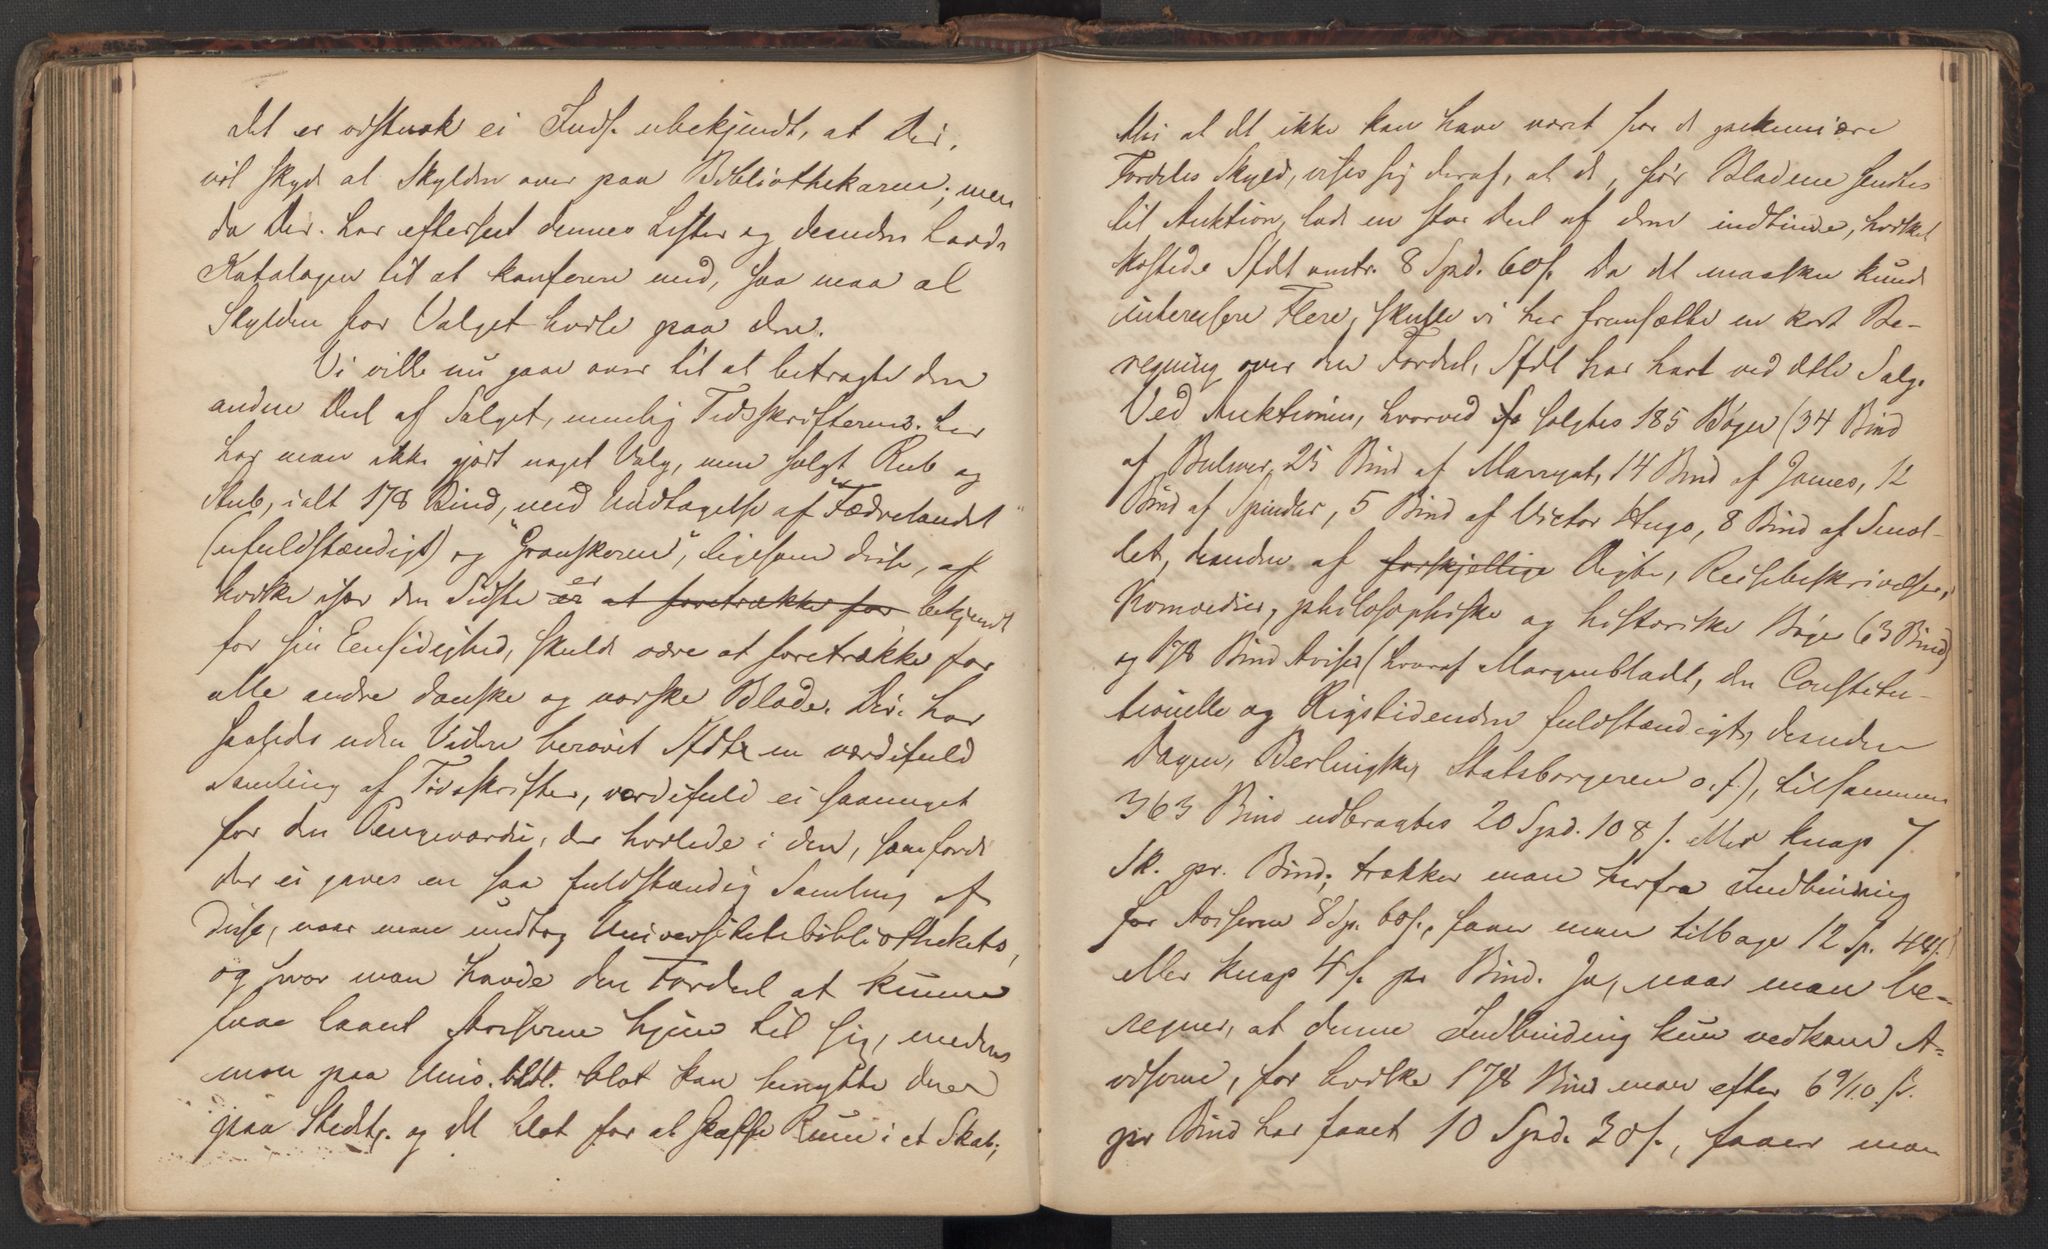 Det er vistnok ei Inds. ubekjendt, at Dir.
vil skyde al Skylden over paa Bibliothekaren; men
da Dir. har efterseet dennes Lister og desuden havde
Katalogen til at konferere med, saa maa al
Skylden for Valget hvile paa den.
Vi ville nu gaae over til at betragte den
anden Deel af Salget, nemlig Tidsskrifternes. Her
har man ikke gjort noget Valg, men solgt Rub og
Stub, ialt 178 Bind, med Undtagelse af "Fædrelandet"
(ufuldstændigt) og "Granskeren", ligesom disse, af
hvilke især den Sidste er er at foretrække for bekjendt
for sin Eensidighed, skulde være at foretrække for
alle andre danske og norske Blade. Dir. har
saaledes uden Videre berøvet Sfdt en værdifuld
Samling af Tidsskrifter, værdifuld ei saameget
for den Pengeværdie, der hvilede i den, som fordi
der ei gaves en saa fuldstændig Samling af
disse, naar man undtog Universitetsbibliothekets,
og hvor man havde den Fordeel at kunne
faae laant Aviserne hjem til sig, medens
man paa Univ. bibl. blot kan benytte dem
paa Stedet. og det blot for at skaffe Rum i et Skab;
Thi at det ikke kan have været for de pecuniære
Fordeles Skyld, vises sig deraf, at de, før Bladene sendtes
til Auktion, lod en stor Deel af dem indbinde, hvilket
kostede Sfdt omtr. 8 Spd. 60 s. Da det maaskee kunde
interessere Flere, skulle vi her fremsætte en kort Be-
regning over den Fordeel, Sfdt har havt ved dette Salg.
Ved Auktionen, hvorved fo solgtes 185 Bøger (34 Bind
af Bulwer, 25 Bind af Marryat, 14 Bind af James, 12
Bind af Spindler, 5 Bind af Victor Hugo, 8 Bind af Smol-
let, desuden af forskjellige Digte, Reisebeskrivelser,
Komoedier, philosophiske og historiske Bøger (63 Bind)
og 178 Bind Aviser (hvoraf Morgenbladet, den Constitu-
tionelle og Rigstidenden fuldstændigt, desuden
Dagen, Berlingske, Statsborgeren o. fl.), tilsammen
363 Bind udbragtes 20 Spd. 108 s. eller knap 7
Sk. pr. Bind; trækker man herfra Indbinding
for Aviserne 8 Sp. 60 s., faaer man tilbage 12 Sp. 48 s.
eller knap 4 s. pr Bind. Ja, naar man be-
regner, at denne Indbinding kun vedkom A-
viserne, for hvilke 178 Bind man efter 6 9/10 s.
pr Bind har faaet 10 Spd. 30 s., faaer man